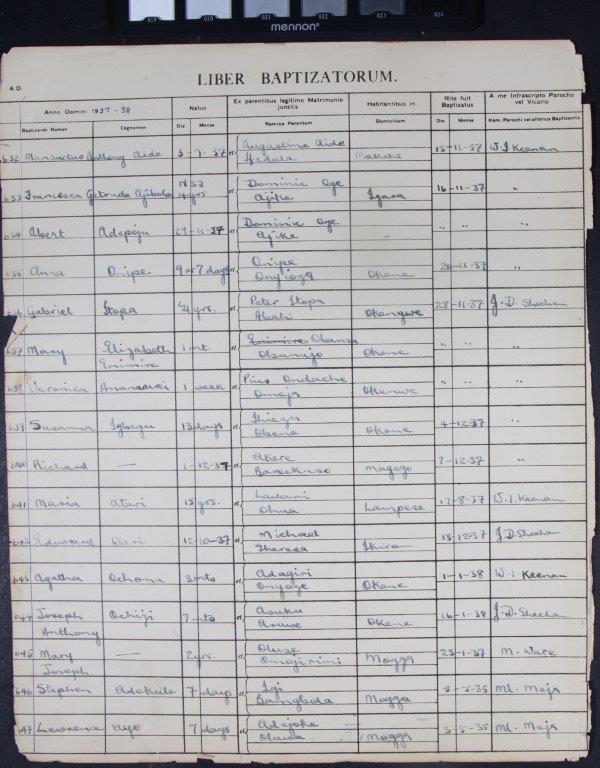 019 020 021 022 023 024
mennon
A.D.
LIBER BAPTIZATORUM.
Anno Domini 1937-38 Natus Ex parentibus legitimo Matrimonio junctis Habitantibus in Rite fuit Baptizatus A me Infrascripto Parocho vel Vicario
Baptizandi Nomen Cognomen Die Mense Nomina Parentum Domicilium Die Mense Nom. Parochi vel alterius Baptizantis
632 Mansuetus Anthony Aide 3-7-37 et Augustine Aide 15-11-37 W.J Keenan
633 Francesca Gertrude Ajibola 4 yrs. et Dominic Oge Ajike Igara 16-11-37 "
634 Abert Adepoju 29-11-37 et Dominic Oge Ajike " " " "
635 Anna Onipe 9 or 7 days et Onipe Okene 20-11-37 "
636 Gabriel Itopa yrs. et Peter Itopa Abahi Okengwe 28-11-37 J.D. Sheehan
637 Mary Elizabeth Enimire 1 mt. et Enimire Obansa Obanujo Okene " " "
638 Veronica 1 week et Pius Ondache Omeja " " "
639 Susanna Igbegu 13 days et Ihiezu Obene Okene 4-12-37 "
640 Richard — 1-12-37 et Akere Magogo 7-12-37 "
641 Maria Atari 15 yrs. et Lawani Ohua Lampese 17-8-37 W.J. Keenan
642 Edward 12-10-37 et Michael Theresa Ikiran 13-12-37 J.D. Sheehan
643 Agatha Ochonu 3 mts et Adagiri Onyoze Okene 1-1-38 W.J Keenan
644 Joseph Anthony Ochiji 7 mts et Auwe Okene 16-1-38 J.D. Sheehan
645 Mary Joseph — 2 yrs. et Oluse Omojimini Mogga 23-1-37 M. Ware
646 Stephen Adekule 7 days et Igi Bamgbola Mogga 5-5-35 Ml. Meja
647 Lawrence Ayo 7 days et Adejoke Oluwa Mogga 5-5-35 Ml. Meja